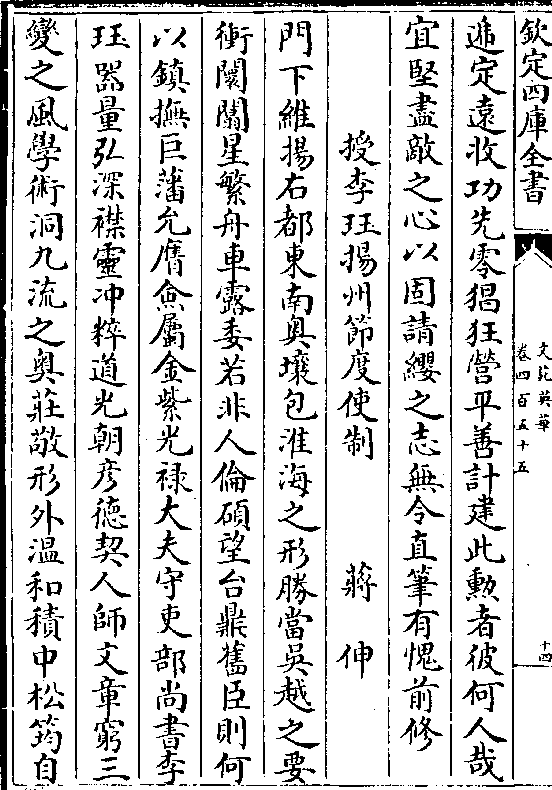 欽定四庫全書
文苑英華
卷四百五十五
十四
遁定遠收功先零猖狂營平善計建此勲者彼何人哉
宜堅盡敵之心以固請纓之志無令直筆有愧前修
授李珏揚州節度使制 蔣伸
門下維揚右都東南奥壤包淮海之形勝當吳越之要
衝闤闠星繁舟車露委若非人倫碩望台鼎舊臣則何
以鎮撫巨藩允膺僉屬金紫光禄大夫守吏部尚書李
珏器量弘深襟靈冲粹道光朝彦徳契人師文章窮三
變之風學術洞九流之奥莊敬形外温和積中松筠自